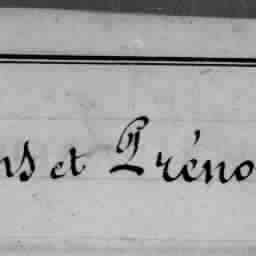 ns et Préno